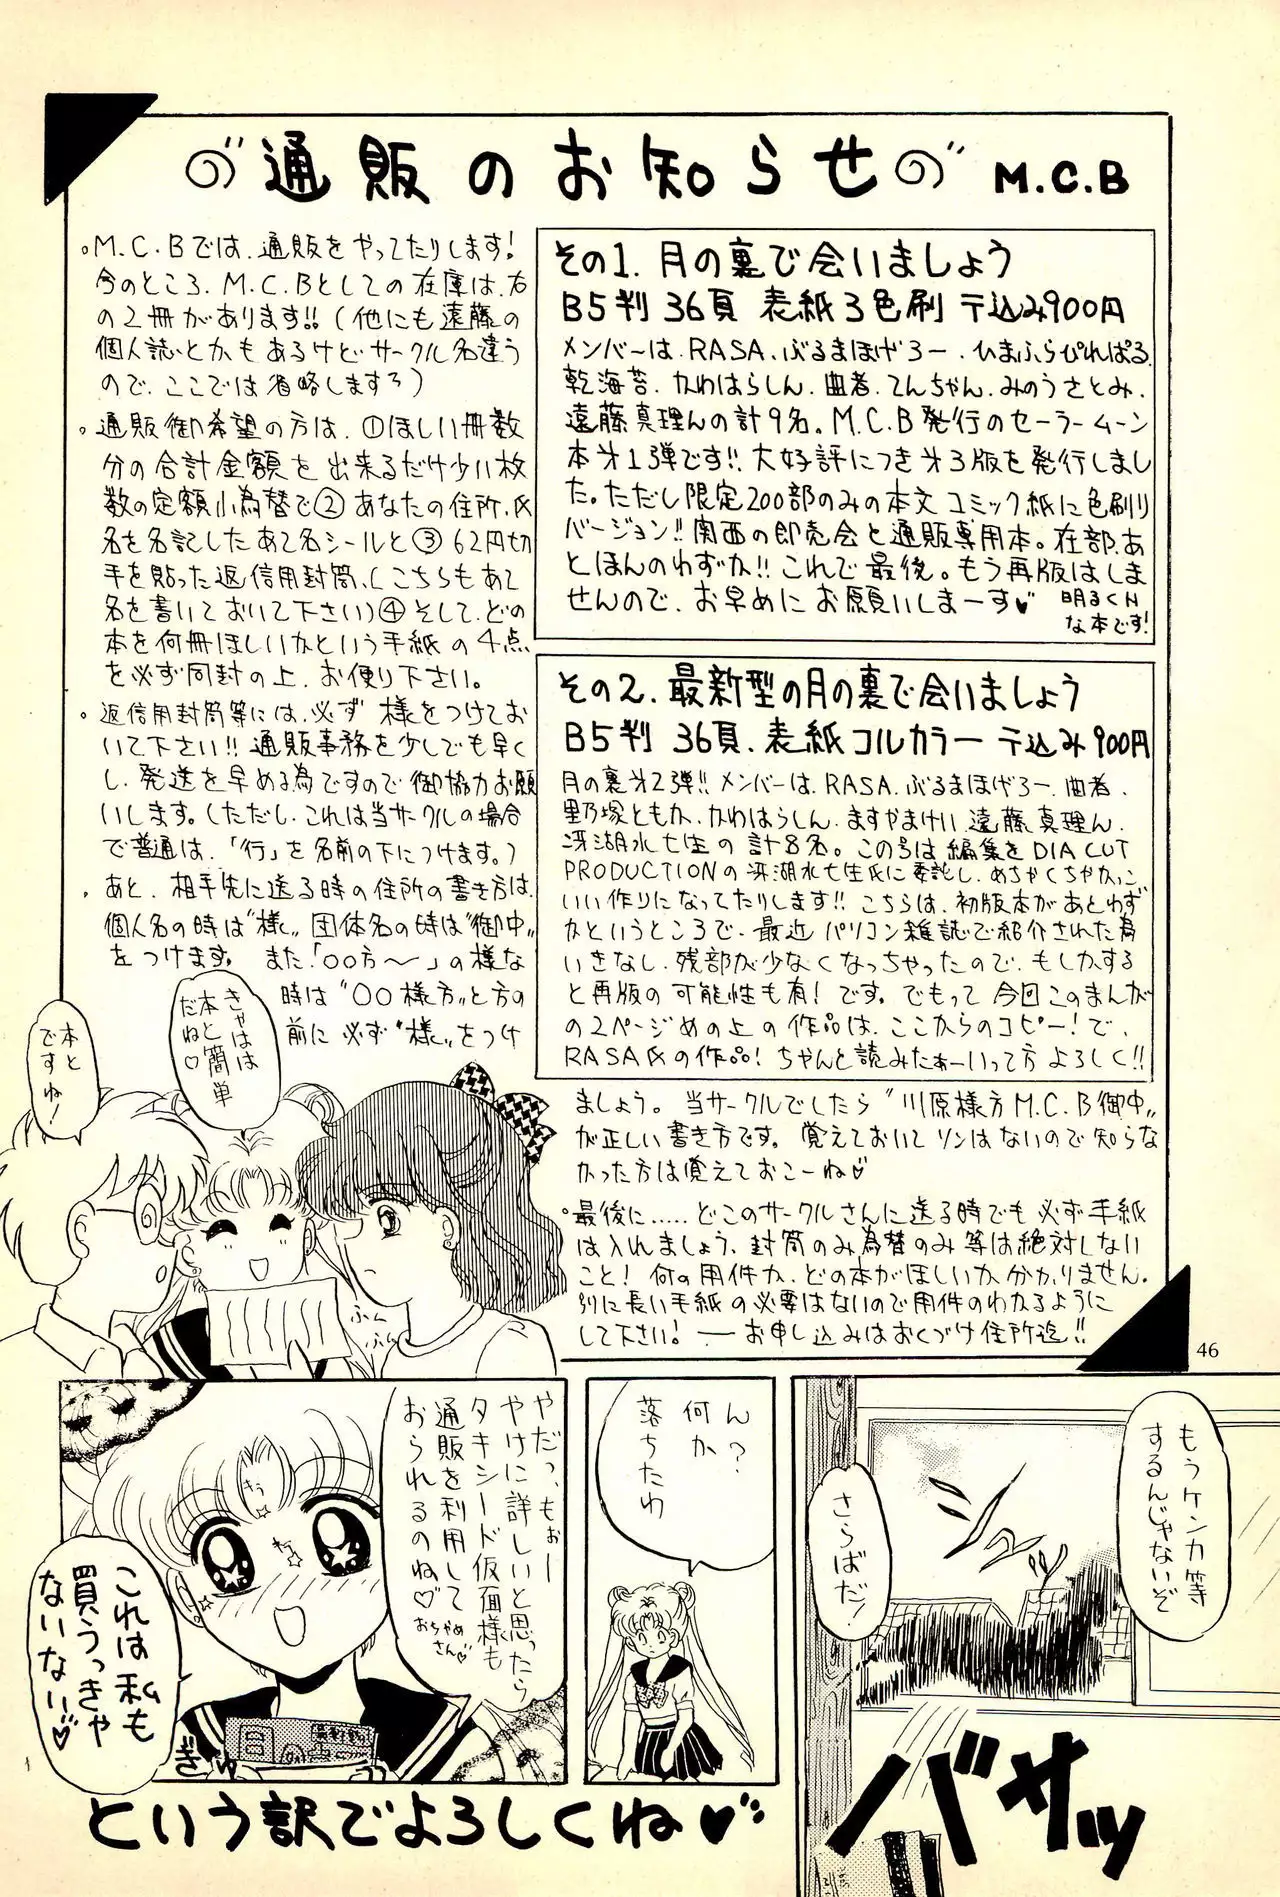 通販のお知らせ M.C.B
。M.C.Bでは、通販をやってたりします!
今のところ、M.C.Bとしての在庫は、右
の2冊があります!!(他にも遠藤の
個人誌とかもあるけどサークル名違う
ので、ここでは省略しますろ)
。通販御希望の方は、①ほしい冊数
分の合計金額を出来るだけ少い枚
数の定額小為替で②あなたの住所、氏
名を名記したあて名シールと③62円切
手を貼った返信用封筒、(こちらもあて
名を書いておいて下さい)④そして、どの
本を何冊ほしいかという手紙の4点
を必ず同封の上、お便り下さい。
。返信用封筒等には、必ず様をつけてお
いて下さい!!通販事務を少しでも早く
し、発送を早める為ですので御協力お願
いします。(ただし、これは当サークルの場合
で普通は、「行」を名前の下につけます。)
。あと、相手先に送る時の住所の書き方は、
個人名の時は"様"、団体名の時は"御中"
をつけます。また「○○方〜」の様な
時は"○○様方"と方の
前に必ず"様"をつけ
その1.月の裏で会いましょう
B5判 36頁 表紙3色刷 〒込み900円
メンバーは、RASA、ぶるまほげろー、ひまふらぴれぱる、
乾海苔、かわはらしん、曲者、てんちゃん、みのうさとみ、
遠藤真理んの計9名。M.C.B発行のセーラームーン
本才1弾です!!大好評につき才3版を発行しまし
た。ただし限定200部のみの本文コミック紙に色刷り
バージョン!!関西の即売会と通販専用本。在部、あ
とほんのわずか!!これで最後。もう再版はしま
せんので、お早めにお願いしまーす♡ 明るくH
な本です!
その2.最新型の月の裏で会いましょう
B5判 36頁、表紙コルカラー 〒込み900円
月の裏才2弾!!メンバーは、RASA、ぶるまほげろー、曲者、
野乃塚ともか、かわはらしん、ますやまけい、遠藤真理ん、
冴湖水七生の計8名。この号は編集をDIA CUT
PRODUCTIONの冴湖水七生氏に委託し、めちゃくちゃかっこ
いい作りになってたりします!!こちらは、初版本があとわず
かというところで、最近パソコン雑誌で紹介された為
いきなし、残部が少なくなっちゃったので、もしかする
と再版の可能性も有!です。でもって今回このまんが
の2ページめの上の作品は、ここからのコピー!で、
RASA氏の作品!ちゃんと読みたぁーいって方よろしく!!
ましょう。当サークルでしたら"川原様方M.C.B御中"
が正しい書き方です。覚えておいてソンはないので知らな
かった方は覚えておこーね♡
。最後に……どこのサークルさんに送る時でも必ず手紙
は入れましょう、封筒のみ為替のみ等は絶対しない
こと!何の用件か、どの本がほしいか分かりません。
別に長い手紙の必要はないので用件のわかるように
して下さい!―お申し込みはおくづけ住所迄!!
きゃはは
本と簡単
だね♡
本と
ですね!
ふん
ふん
46
もうケンカ等
するんじゃないぞ
さらばだ!
バサッ
ん?
何か
落ちたわ
やだっ、もぉー
やけに詳しいと思ったら
タキシード仮面様も
通販を利用して
おられるのね♡
おちゃめ
さん♡
これは私も
買うっきゃ
ないない♡
ぎゅ
という訳でよろしくね♡